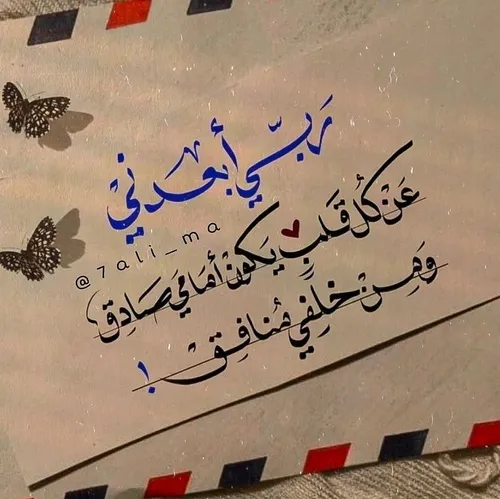 رَبِّي أبعدني
@7ali_ma
عَن كُل قَلبٍ يَكون أمَامي صَادِق
وَمِن خَلِفي مُنافِق !